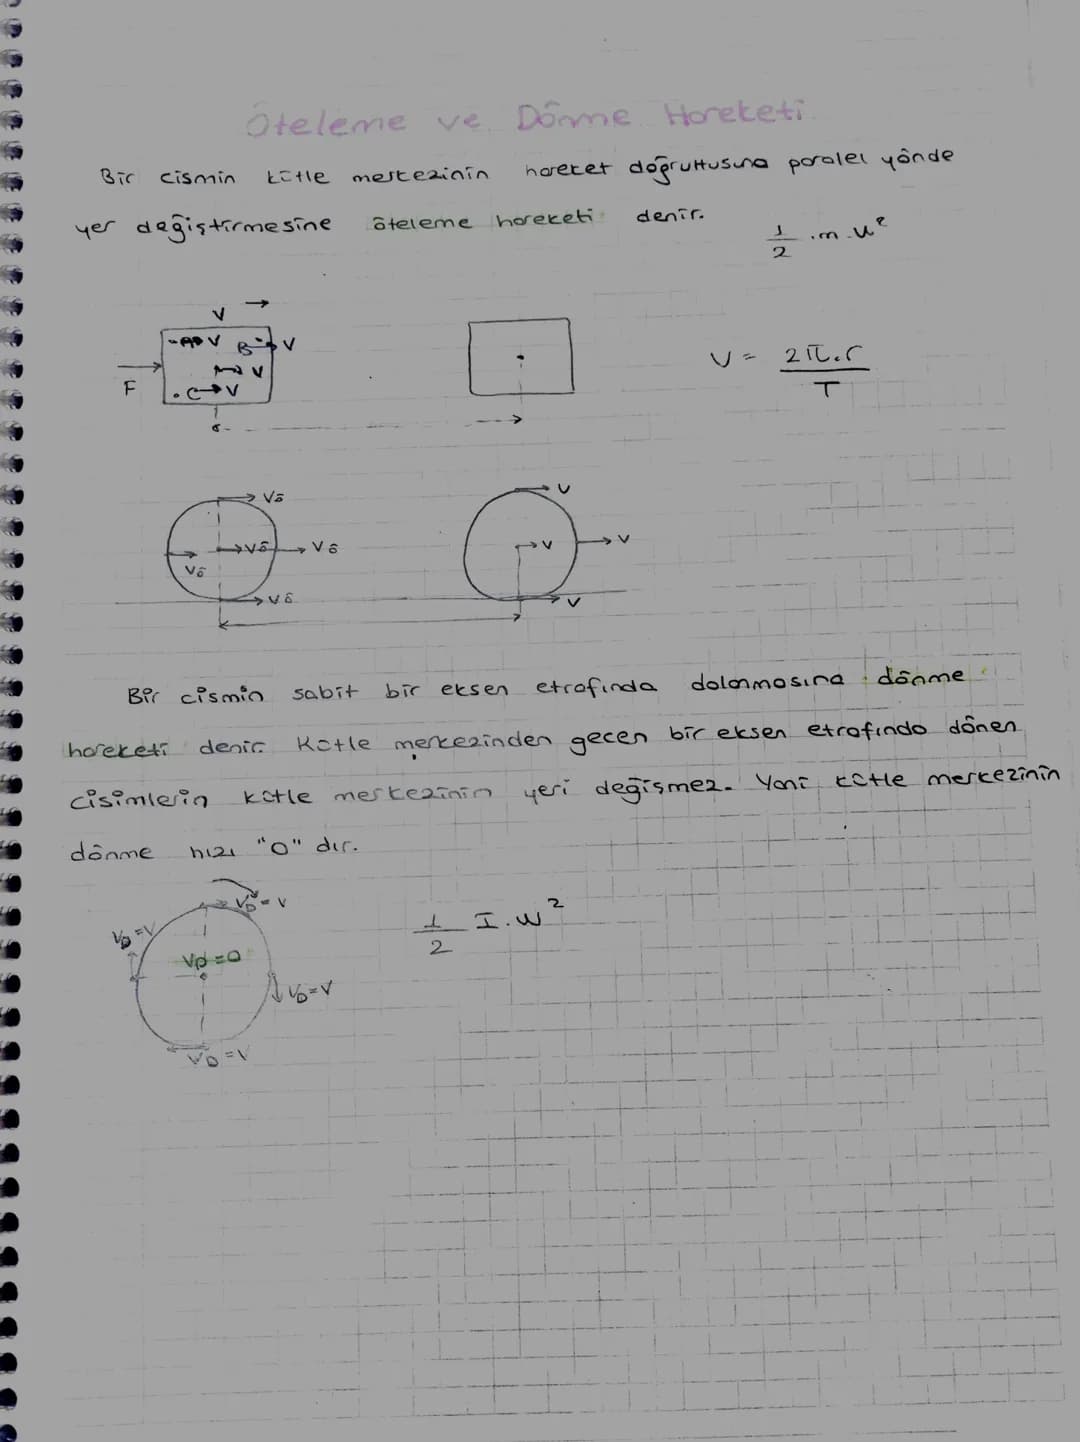 Öteleme ve Dönme Hareketi
Bir cismin kütle merkezinin hareket doğrultusuna paralel yönde
yer değiştirmesine öteleme hareketi denir.
1/2 .m.v²
V →
F
A V B V
V
.C→V
V = 2π.r / T
Vö
Vö Vö Vö
Vö
V
V V
V
Bir cismin sabit bir eksen etrafında dolanmasına dönme
hareketi denir. Kütle merkezinden geçen bir eksen etrafında dönen
cisimlerin kütle merkezinin yeri değişmez. Yani kütle merkezinin
dönme hızı "0" dır.
VD=V
VD=V
VD=0
VD=V
VD=V
1/2 I.W²